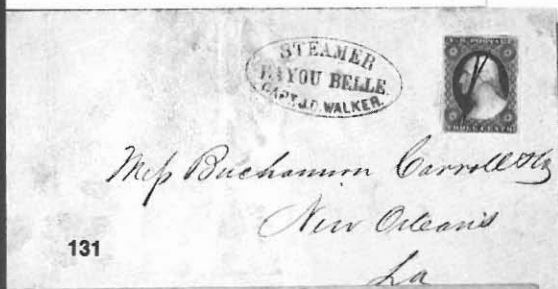 STEAMER
BAYOU BELLE.
CAPT. J.D. WALKER.
U.S. POSTAGE
THREE CENTS
Mess Buchannon Carroll & Co
New Orleans
La
131